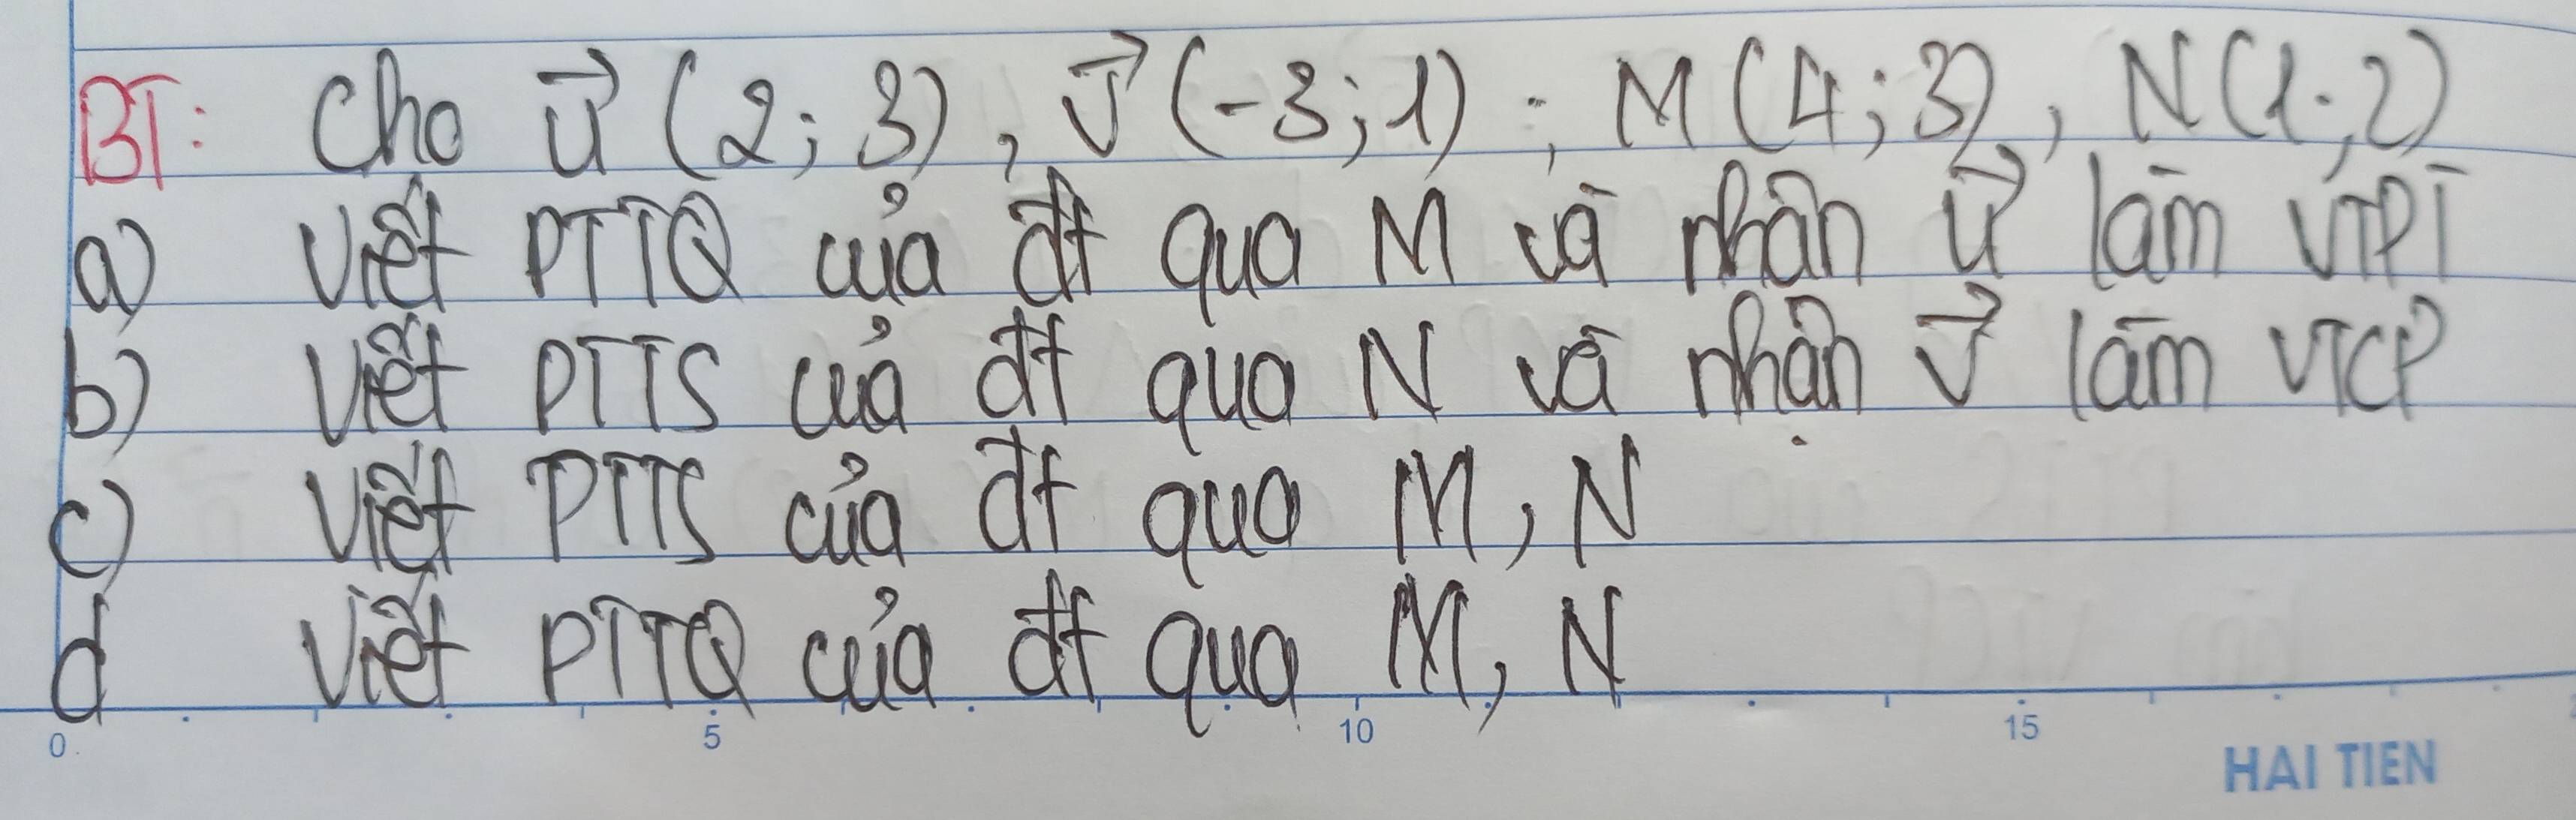 BT: Cho u⃗ (2; 3), v⃗ (-3; 1); M (4; 3), N(1; 2)
a) Viết PTTQ của đt qua M và nhận u⃗ làm VTPT
b) Viết PTTS của đt qua N và nhận v⃗ làm VTCP
c) Viết PTTS của đt qua M, N
d Viết PTTQ của đt qua M, N
0 5 10 15
HAI TIEN